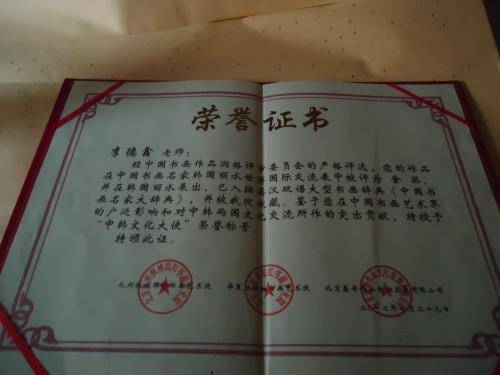 荣誉证书
李德鑫 老师：
经中国书画作品润格评审委员会的严格评选，您的作品
在中国书画名家韩国丽水世博国际交流展中被评为金奖，
并在韩国丽水展出，已入编英汉双语大型书画辞典《中国书
画名家大辞典》，并被我院收藏。鉴于您在中国书画艺术界
的广泛影响和对中韩两国文化交流所作的突出贡献，特授予
“中韩文化大使”荣誉称号
特颁此证。
九州 书画艺术院 华夏 艺术院 北京 有限公司
二〇一二年 月二十九日